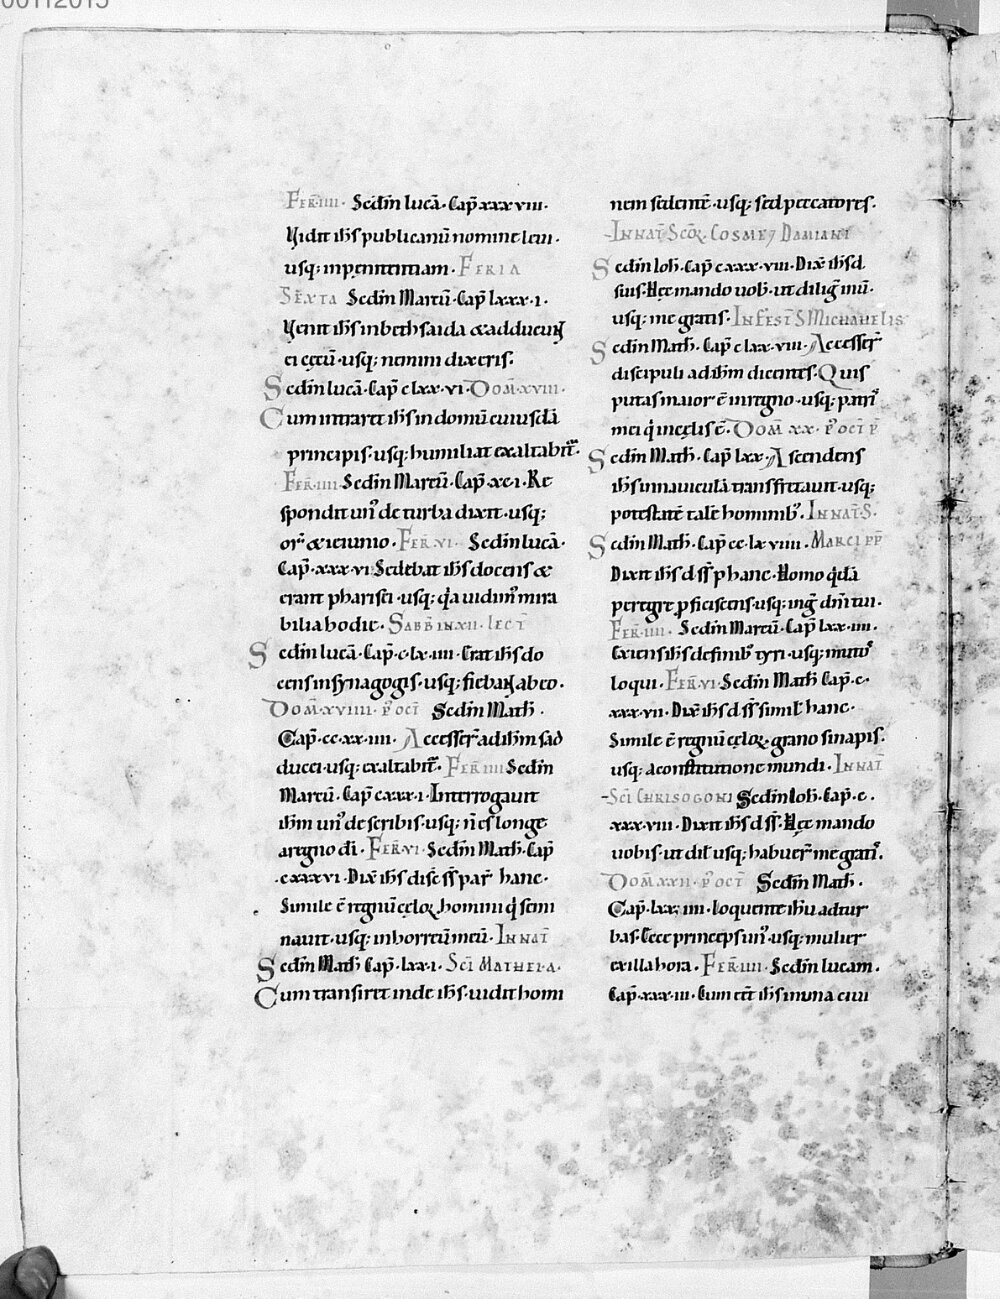 00112015
Fer̄·iiii· Scd̄m lucā· Cap̄ xxxviii·
Vidit ih̄s publicanū nomine leui·
usq; inpenitentiam· Feria
Sexta Scd̄m Marcū· Cap̄ lxxx·i·
Venit ih̄s in bethsaida & adducunt
ei cęcū· usq; nemini dixeris·
Scd̄m lucā· Cap̄ clxx·vi· Dom̄·xviii·
Cum intraret ih̄s in domū cuiusdā
principis· usq; humiliat exaltabit̄·
Fer̄·iiii· Scd̄m Marcū· Cap̄ xc·i· Re
spondit un᾽ de turba dixit· usq;
or̄ & ieiunio· Fer̄·vi· Scd̄m lucā·
Cap̄·xxx·vi· Sedebat ih̄s docens &
erant pharisei· usq; q̄a uidim᾽ mira
bilia hodie· Sabb̄ in xii· lect̄
Scd̄m lucā· Cap̄·c·lx·iiii· Erat ih̄s do
cens in synagogis· usq; fiebant ab eo·
Dom̄·xviiii· p᾽ oct̄ Scd̄m Math̄·
Cap̄·cc·xx·iiii· Accesser̄ ad ih̄m sad
ducei· usq; exaltabit̄· Fer̄·iiii Scd̄m
Marcū· Cap̄ cxxx·i· Interrogauit
ih̄m un᾽ de scribis· usq; n̄ es longe
a regno dī· Fer̄·vi· Scd̄m Math̄· Cap̄
·cxxxvi· Dix̄ ih̄s disc̄ s̄ par̄ hanc·
Simile ē regnū cęloꝝ homini q̄ semi
nauit· usq; in horreū meū· In nat̄
Scd̄m Math̄ Cap̄·lxx·i· Sc̄i Mathei·a·
Cum transiret inde ih̄s· uidit homi
nem sedentē· usq; sed peccatores·
In nat̄ Sc̄oꝝ Cosme ⁊ Damiani
Scd̄m Ioh̄· Cap̄ cxxx·viii· Dix̄ ih̄s d̄
suis· Hęc mando uob̄· ut diliḡ inū·
usq; me gratis· In fest̄ S Michahelis
Scd̄m Math̄· Cap̄ clxx·viii· Accesser̄
discipuli ad ih̄m dicentes· Quis
putas maior ē in regno· usq; patri᾽
mei q̄ in cęlis ē· Dom̄ xx· p᾽ oct̄ p̄
Scd̄m Math̄· Cap̄ lxx· Ascendens
ih̄s in nauiculā transfretauit· usq;
potestatē talē hominib᾽· In nat̄ S·
Scd̄m Math̄· Cap̄ cc·lxviiii· Marci pp̄
Dixit ih̄s d̄ s̄ p hanc· Homo q̄dā
peregre p̄ficiscens· usq; in ḡ dn̄i tui·
Fer̄·iiii· Scd̄m Marcū· Cap̄ lxx·iiii·
Exiens ih̄s de finib᾽ tyri· usq; mutos
loqui· Fer̄·vi· Scd̄m Math̄ Cap̄·c·
xxx·vii· Dix̄ ih̄s d̄ s̄ simil̄ hanc·
Simile ē regnū cęloꝝ grano sinapis·
usq; a constitutione mundi· In nat̄
Sc̄i Chrisogoni Scd̄m Ioh̄· Cap̄·c·
xxx·viii· Dixit ih̄s d̄ s̄· Hęc mando
uobis· ut dil̄ usq; habuer̄ me grat̄·
Dom̄·xxii· p᾽ oct̄ Scd̄m Math̄·
Cap̄·lxx·iiii· loquente ih̄u ad tur
bas· Ecce princeps un᾽· usq; mulier
ex illa hora· Fer̄·iiii· Scd̄m lucam·
Cap̄·xxx·iii· Cum eēt ih̄s in una ciui